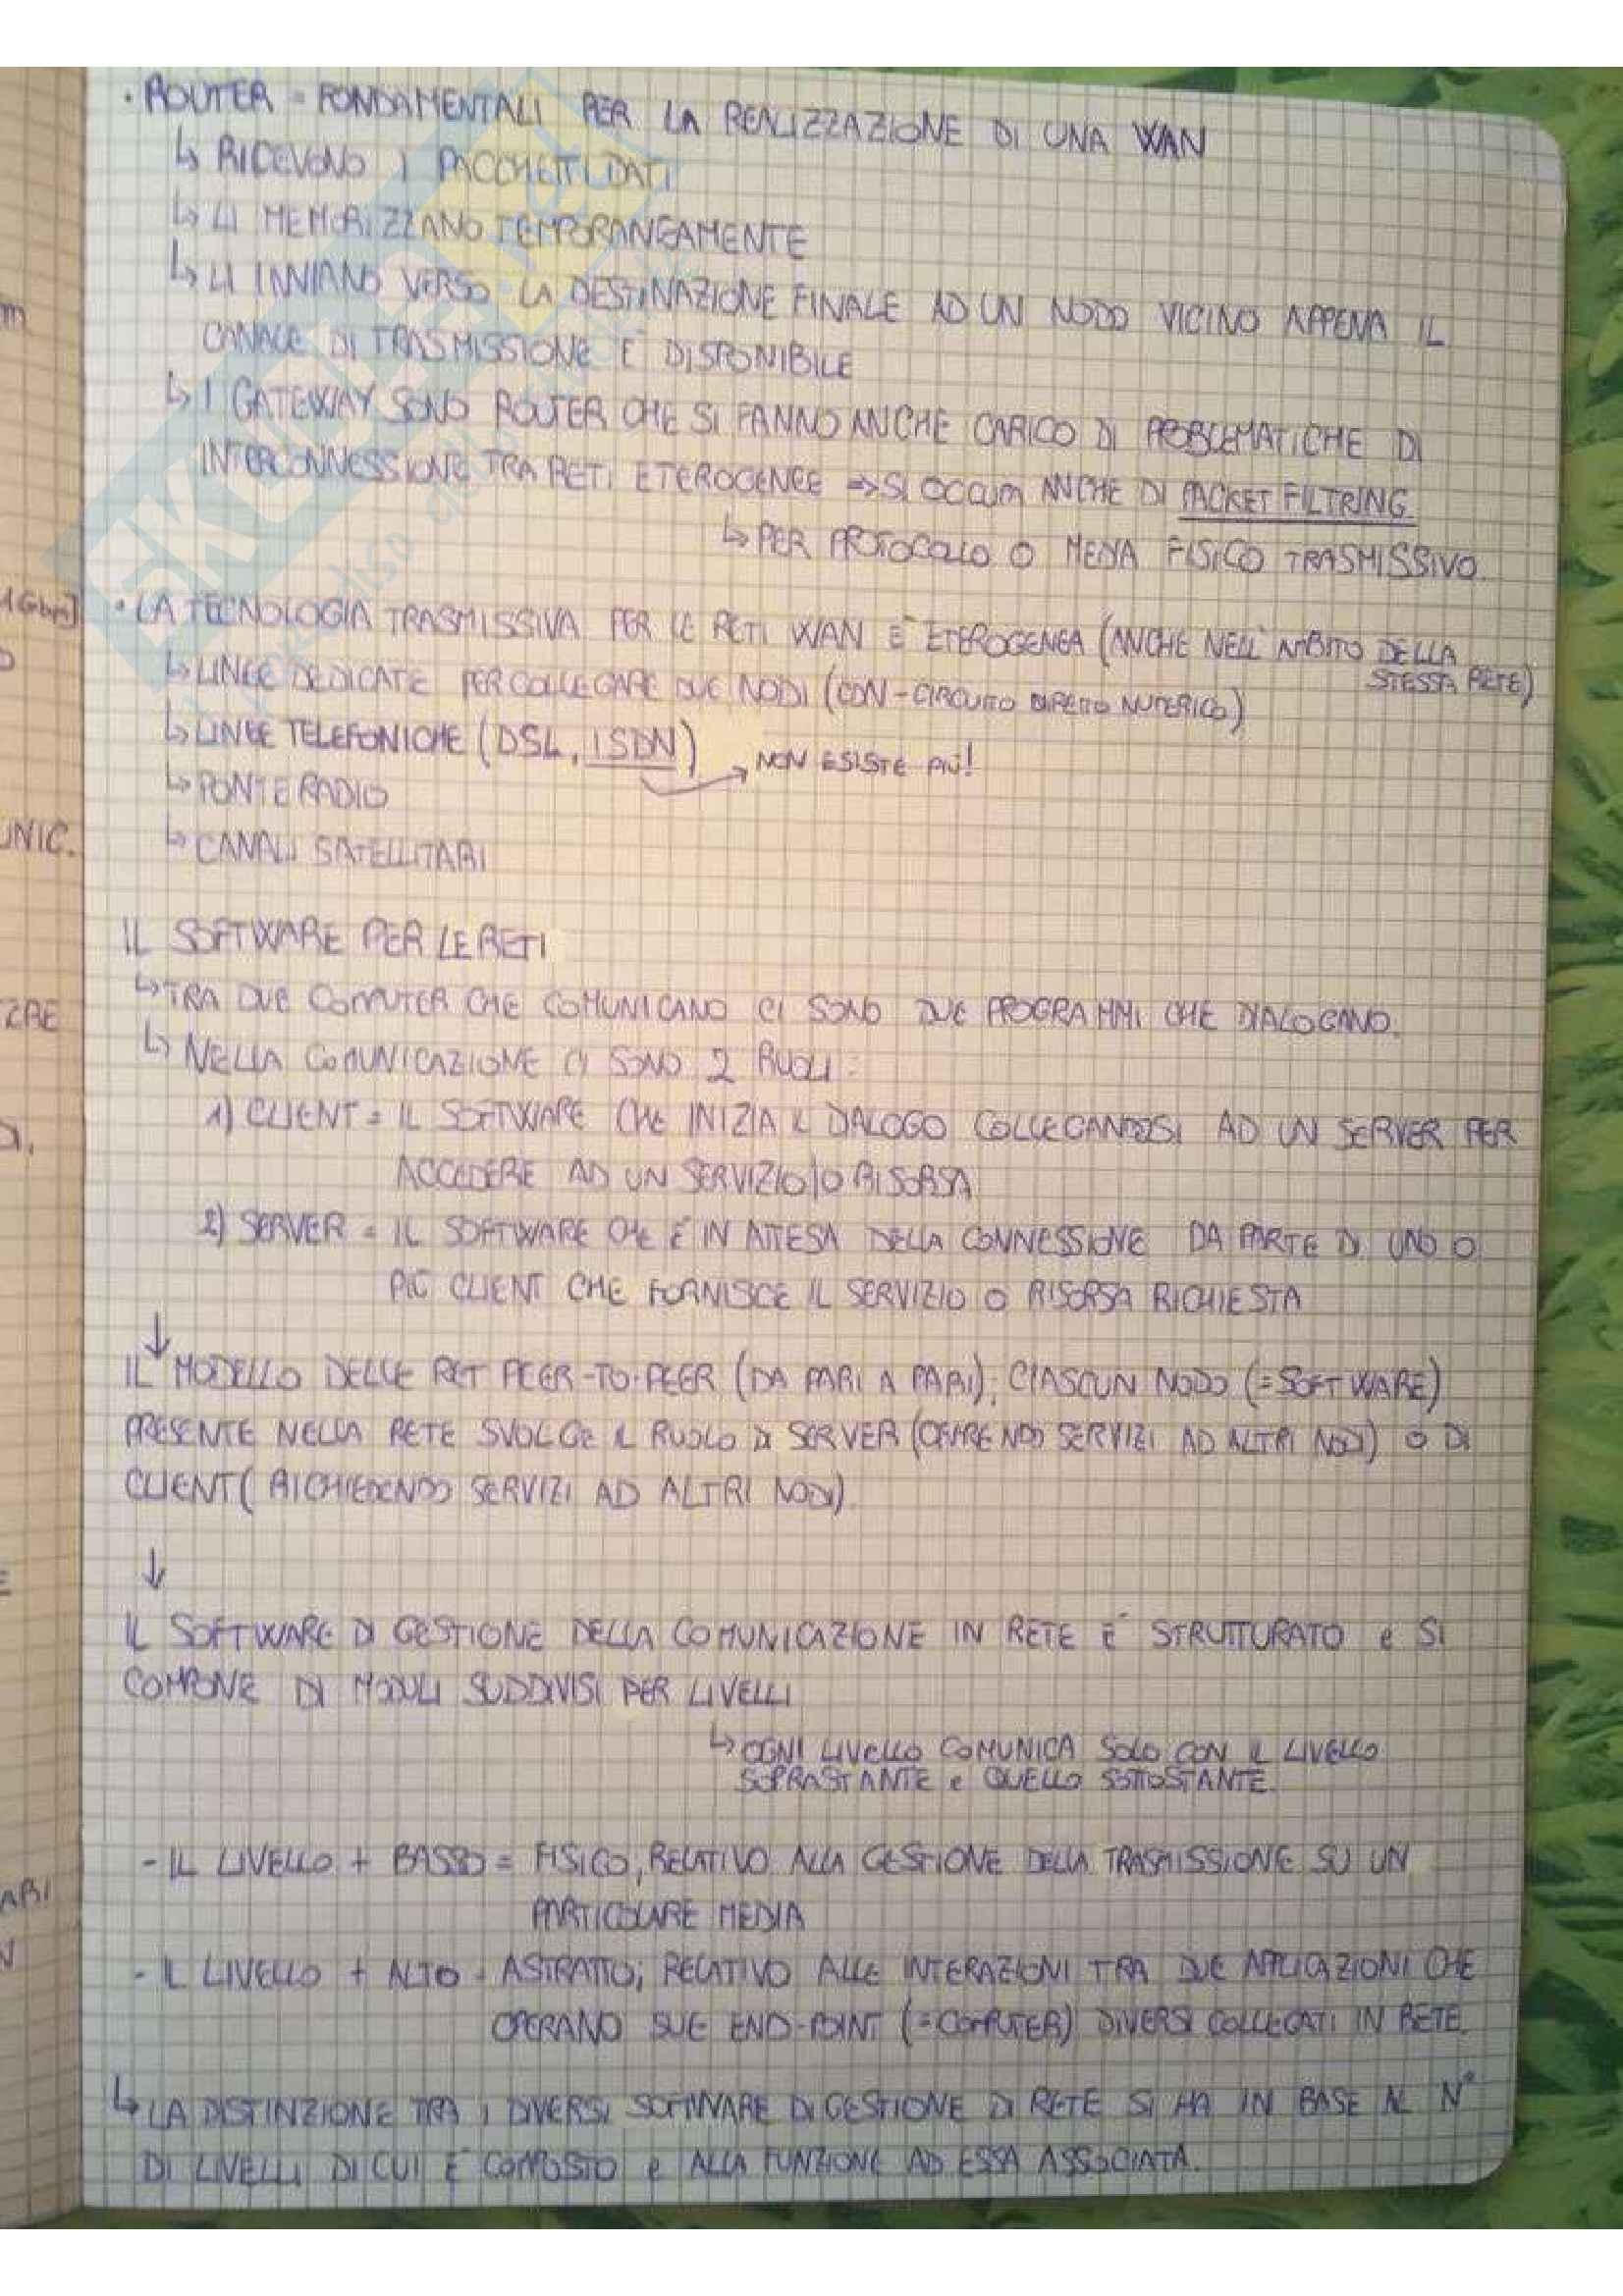 · ROUTER = FONDAMENTALI PER LA REALIZZAZIONE DI UNA WAN
↳ RICEVONO I PACCHETTI DATI
↳ LI MEMORIZZANO TEMPORANEAMENTE
↳ LI INVIANO VERSO LA DESTINAZIONE FINALE AD UN NODO VICINO APPENA IL
CANALE DI TRASMISSIONE È DISPONIBILE
↳ I GATEWAY SONO ROUTER CHE SI FANNO ANCHE CARICO DI PROBLEMATICHE DI
INTERCONNESSIONE TRA RETI ETEROGENEE => SI OCCUPA ANCHE DI PACKET FILTRING
↳ PER PROTOCOLLO O MEDIA FISICO TRASMISSIVO.
· LA TECNOLOGIA TRASMISSIVA PER LE RETI WAN È ETEROGENEA (ANCHE NELL'AMBITO DELLA
STESSA RETE)
↳ LINEE DEDICATE PER COLLEGARE DUE NODI (CDN-CIRCUITO DIRETTO NUMERICO)
↳ LINEE TELEFONICHE (DSL, ISDN) → NON ESISTE PIÙ!
↳ PONTE RADIO
↳ CANALI SATELLITARI
IL SOFTWARE PER LE RETI
↳ TRA DUE COMPUTER CHE COMUNICANO CI SONO DUE PROGRAMMI CHE DIALOGANO.
↳ NELLA COMUNICAZIONE CI SONO 2 RUOLI:
1) CLIENT = IL SOFTWARE CHE INIZIA IL DIALOGO COLLEGANDOSI AD UN SERVER PER
ACCEDERE AD UN SERVIZIO/O RISORSA
2) SERVER = IL SOFTWARE CHE È IN ATTESA DELLA CONNESSIONE DA PARTE DI UNO O
PIÙ CLIENT CHE FORNISCE IL SERVIZIO O RISORSA RICHIESTA
↓
IL MODELLO DELLE RETI PEER-TO-PEER (DA PARI A PARI); CIASCUN NODO (=SOFTWARE)
PRESENTE NELLA RETE SVOLGE IL RUOLO DI SERVER (OFFRENDO SERVIZI AD ALTRI NODI) O DI
CLIENT (RICHIEDENDO SERVIZI AD ALTRI NODI).
↓
IL SOFTWARE DI GESTIONE DELLA COMUNICAZIONE IN RETE È STRUTTURATO e SI
COMPONE DI MODULI SUDDIVISI PER LIVELLI
↳ OGNI LIVELLO COMUNICA SOLO CON IL LIVELLO
SOPRASTANTE e QUELLO SOTTOSTANTE.
- IL LIVELLO + BASSO = FISICO, RELATIVO ALLA GESTIONE DELLA TRASMISSIONE SU UN
PARTICOLARE MEDIA
- IL LIVELLO + ALTO = ASTRATTO; RELATIVO ALLE INTERAZIONI TRA DUE APPLICAZIONI CHE
OPERANO SUE END-POINT (=COMPUTER) DIVERSI COLLEGATI IN RETE.
↳ LA DISTINZIONE TRA I DIVERSI SOFTWARE DI GESTIONE DI RETE SI HA IN BASE AL N°
DI LIVELLI DI CUI È COMPOSTO e ALLA FUNZIONE AD ESSA ASSOCIATA.